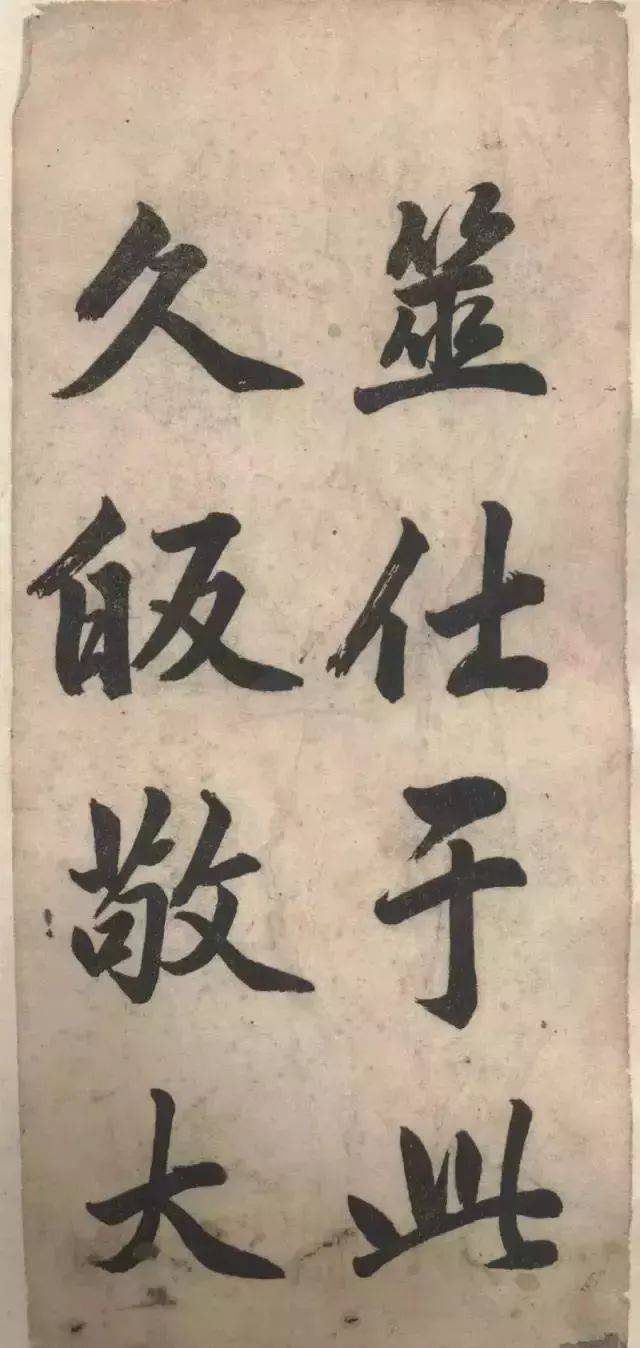 筮仕于此
久皈敬大